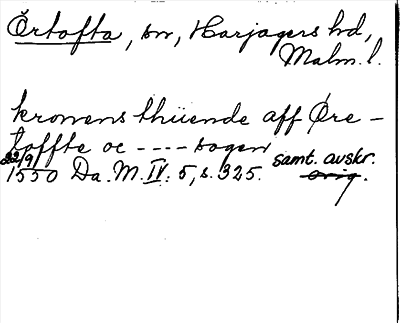 Örtofta, sn, Harjagers hd,
Malm. l.
kronens thiiende aff Øre-
toffte oc ---- sogen
22/9 1550 Da. M. IV. 5, s. 325. samt. avskr.
orig.